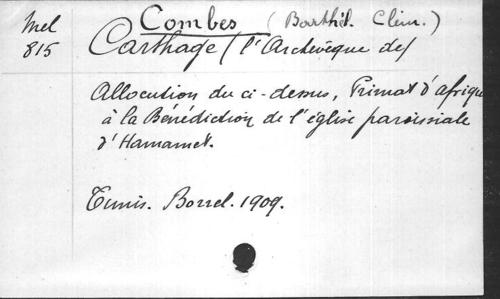 Mel
815
Combes (Barthél. Clém.)
Carthage (l'Archevêque de)
Allocution du ci-dessus, Primat d'afrique
à la Bénédiction de l'église paroissiale
d'Hamamet.
Tunis. Borrel. 1909.